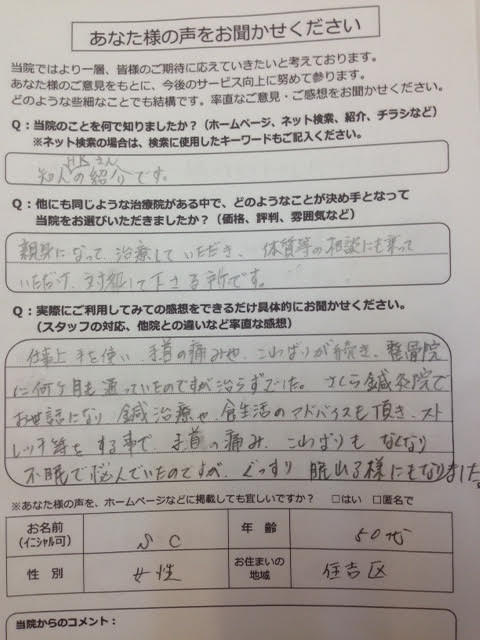 あなた様の声をお聞かせください
当院ではより一層、皆様のご期待に応えていきたいと考えております。
あなた様のご意見をもとに、今後のサービス向上に努めて参ります。
どのような些細なことでも結構です。率直なご意見・ご感想をお聞かせください。
Q：当院のことを何で知りましたか？（ホームページ、ネット検索、紹介、チラシなど）
※ネット検索の場合は、検索に使用したキーワードもご記入ください。
さん
知人の紹介です。
Q：他にも同じような治療院がある中で、どのようなことが決め手となって
当院をお選びいただきましたか？（価格、評判、雰囲気など）
親身になって、治療していただき、体質等の相談にも乗って
いただけ、対処して下さる所です。
Q：実際にご利用してみての感想をできるだけ具体的にお聞かせください。
（スタッフの対応、他院との違いなど率直な感想）
仕事上手を使い、手首の痛みや、こわばりが続き、整骨院
に何ケ月も通っていたのですが治らずでした。さくら鍼灸院で
お世話になり、鍼治療や、食生活のアドバイスも頂き、スト
レッチ等をする事で、手首の痛み、こわばりもなくなり
不眠で悩んでいたのですが、ぐっすり眠れる様にもなりました。
※あなた様の声を、ホームページなどに掲載しても宜しいですか？ □はい □匿名で
お名前 S C 年齢 50代
（イニシャル可）
性別 女性 お住まいの地域 住吉区
当院からのコメント：